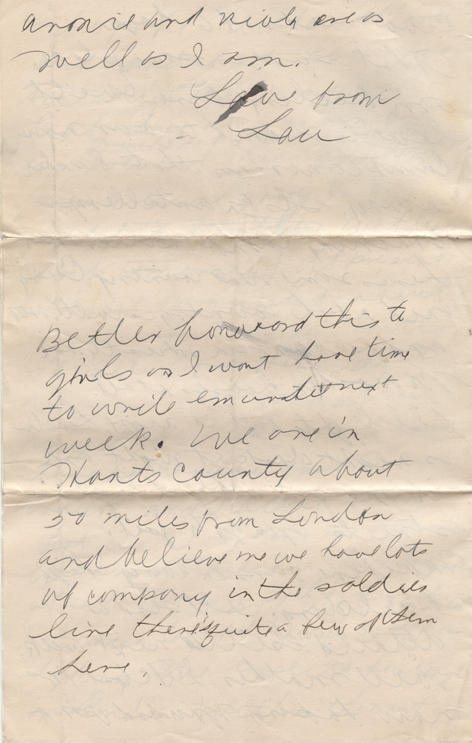 and Viola are as
well as I am.
Love from
Lau
Better forward this to
girls as I wont have time
to write em until next
week. We are in
Hants county about
50 miles from London
and believe me we have lots
of company in the soldier
line there's quite a few of them
here.